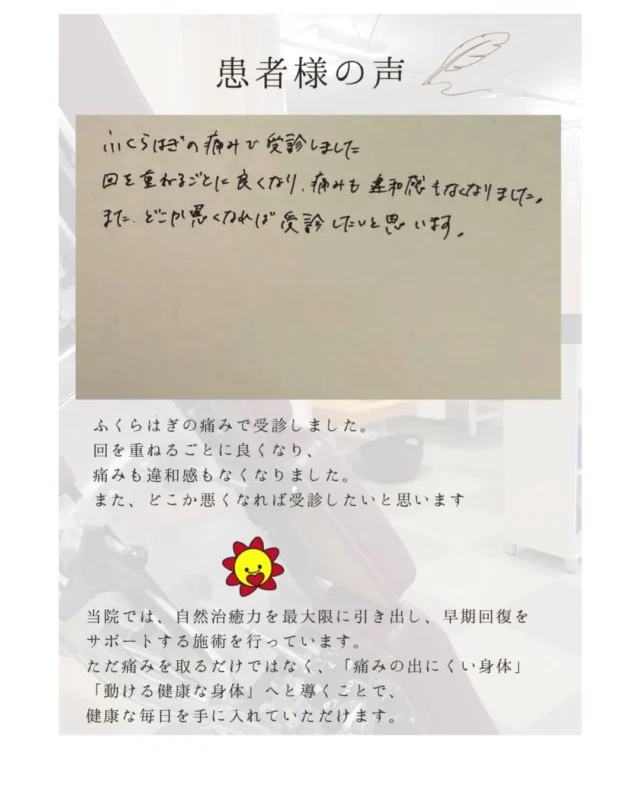 患者様の声
ふくらはぎの痛みで受診しました
回を重ねるごとに良くなり、痛みも違和感もなくなりました。
また、どこか悪くなれば受診したいと思います。
ふくらはぎの痛みで受診しました。
回を重ねるごとに良くなり、
痛みも違和感もなくなりました。
また、どこか悪くなれば受診したいと思います
当院では、自然治癒力を最大限に引き出し、早期回復を
サポートする施術を行っています。
ただ痛みを取るだけではなく、「痛みの出にくい身体」
「動ける健康な身体」へと導くことで、
健康な毎日を手に入れていただけます。